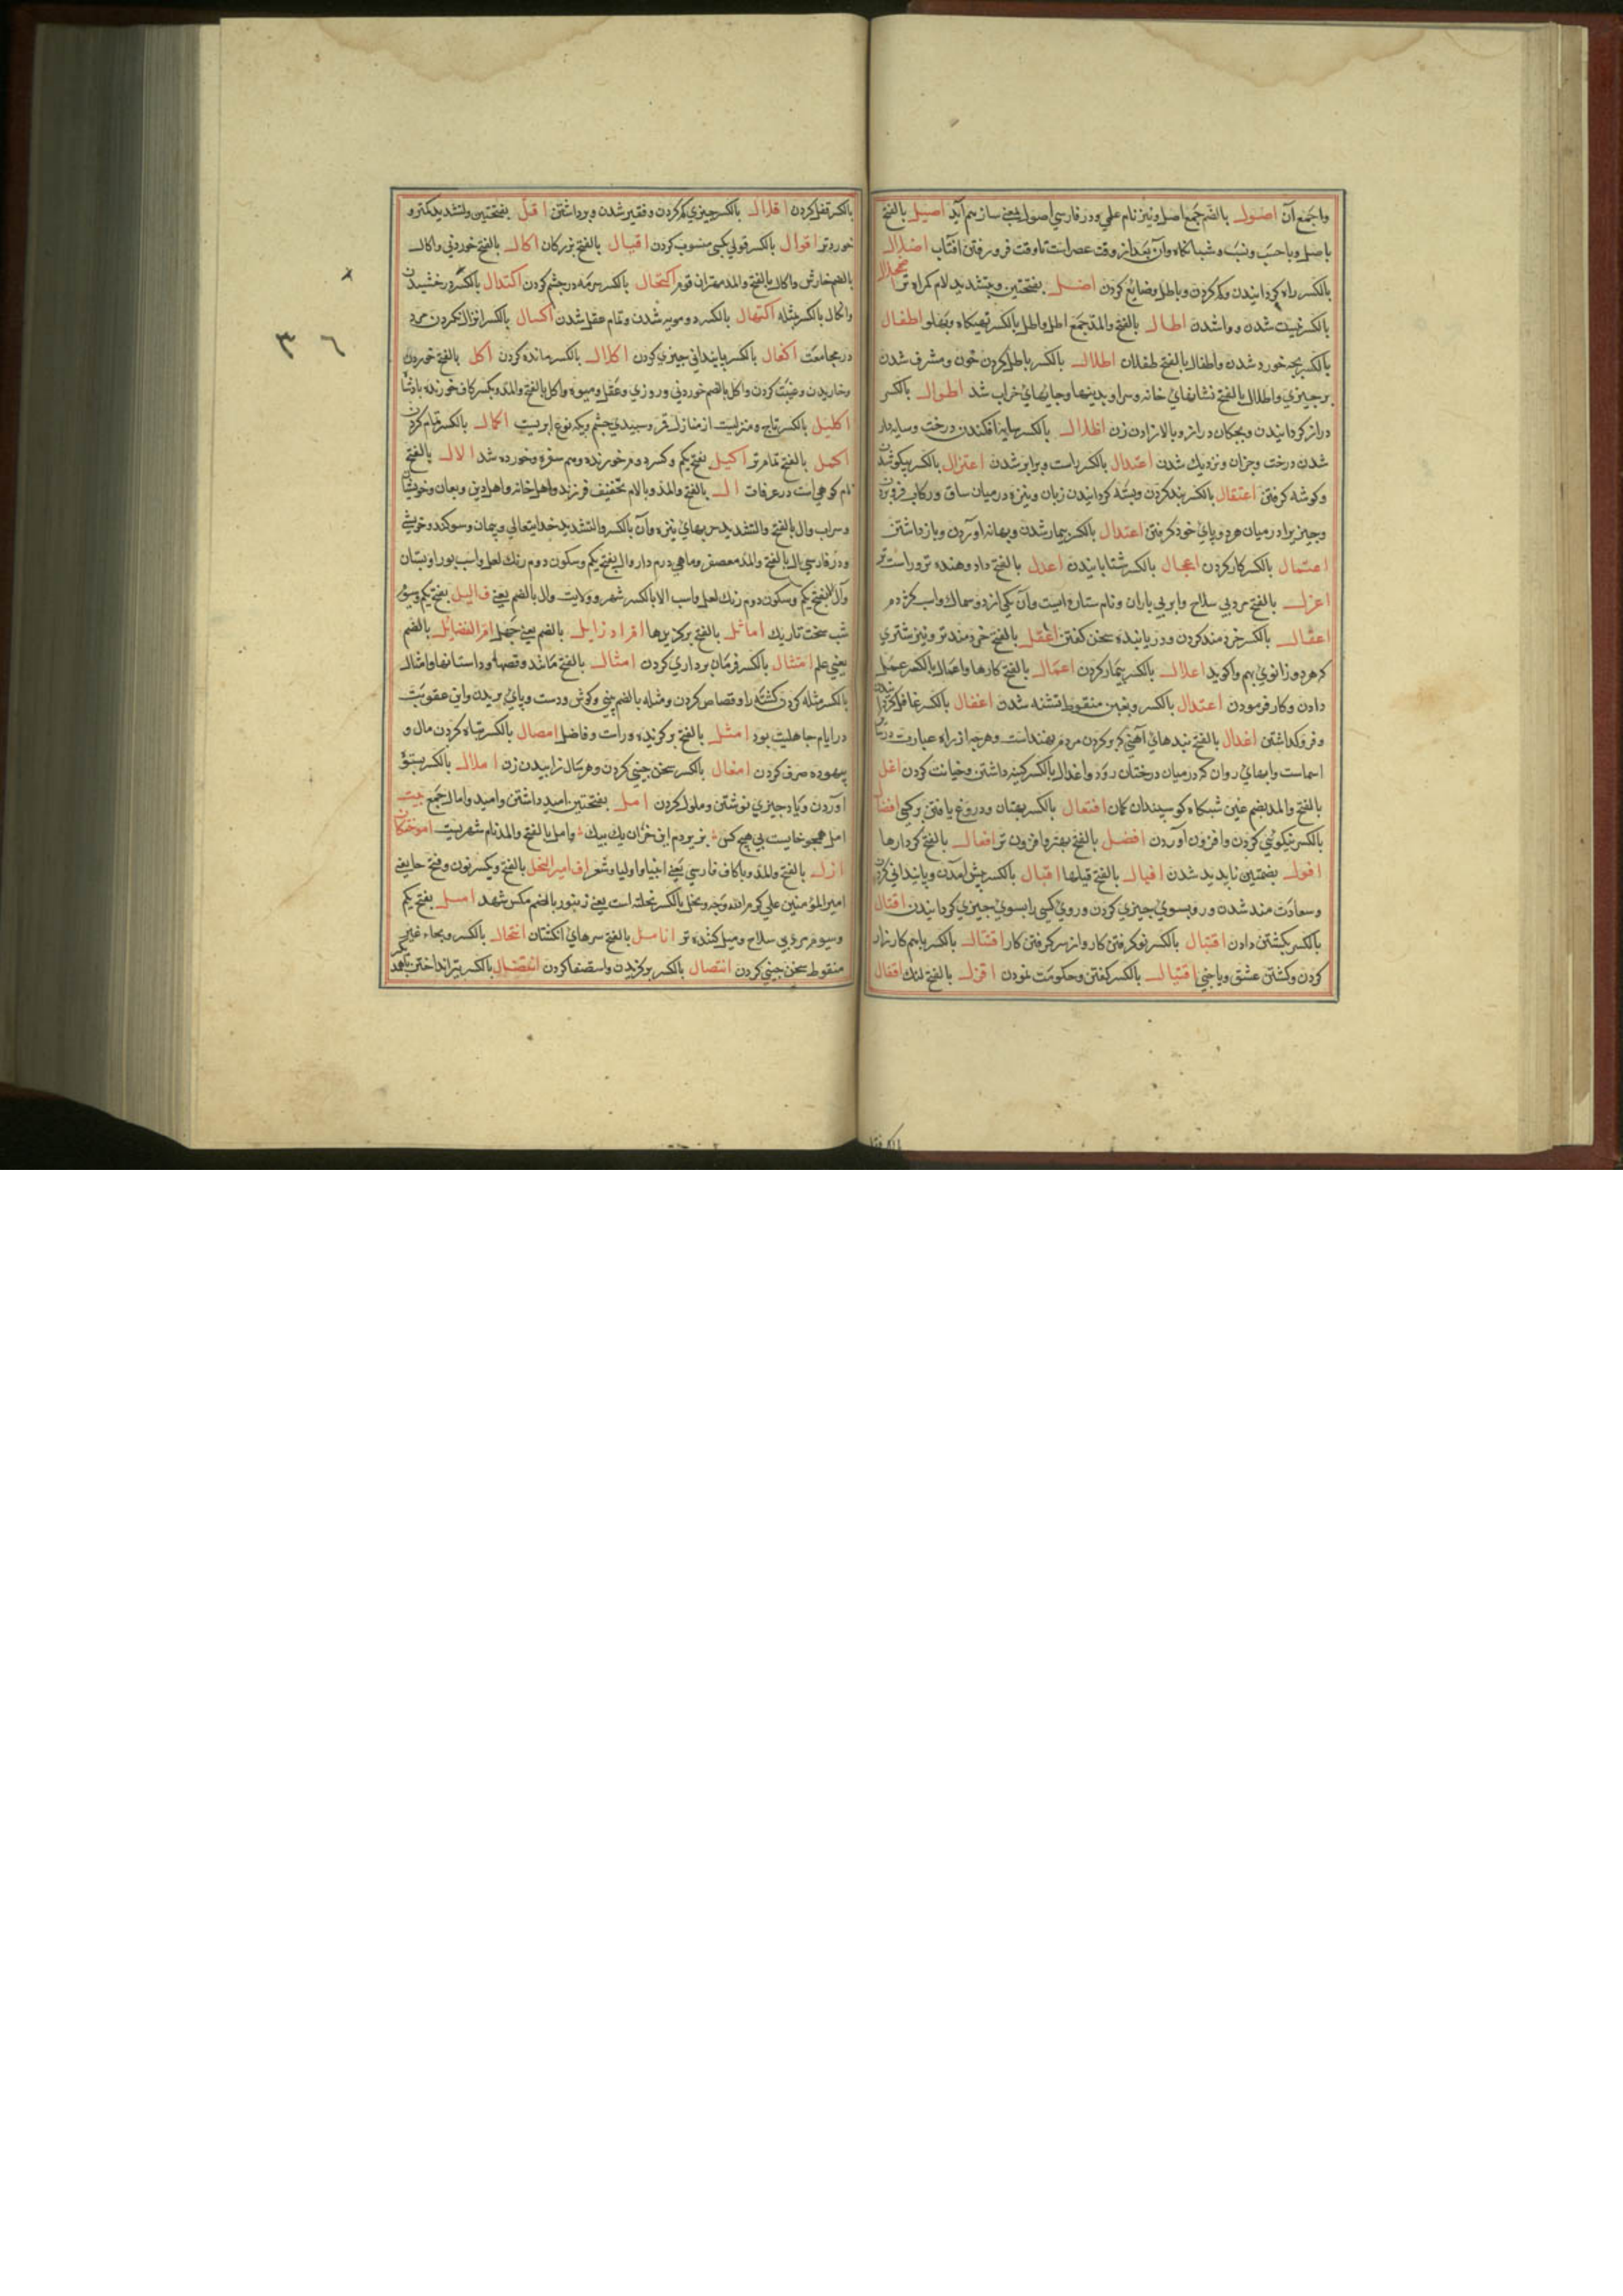 واجمع آن اصول بالضم جمع اصل ونیز نام علمی بود در فارسی اصول یعنی ساز بهم آید اصیل بالفتح
باصل وباحسب ونسب وشبانگاه وآن بعد از وقت عصر است تا وقت فرو رفتن افتاب اضلال
بالکسر راه کردانیدن وکم کردن وباطل وضایع کردن اضل بفتحتین وبتشدید لام کمراه تر اضمحلال
بالکسر نیست شدن وواشدن اطال بالفتح والمد جمع اطل واطل بالکسر تهیکاه وپهلو اطفال
بالکسر بچه خورد شدن واطفال بالفتح طفلان اطلال بالکسر باطل کردن خون ومشرف شدن
بر چیزی واطلال بالفتح نشانهای خانه وسرا وبدینها وجایهای خراب شد اطوال بالکسر
دراز کردانیدن وبچکان دراز وبالا زادن زن اظلال بالکسر سایه افکندن درخت وسایه دار
شدن درخت وجزان ونزدیك شدن اعتدال بالکسر راست وبرابر شدن اعتزال بالکسر بیکوشدن
وکوشه کرفتن اعتقال بالکسر بند کردن وبسته کردانیدن زبان ونیزه درمیان ساق ورکاب فرو بردن
وچیزیرا درمیان هردو پای خود کرفتن اعتدال بالکسر بیمار شدن وبهانه آوردن وباز داشتن
اعتمال بالکسر کار کردن اعجال بالکسر شتابانیدن اعدل بالفتح داد دهنده تر وراست تر
اعزل بالفتح مرد بی سلاح وابر بی باران ونام ستاره ایست وآن یکی از دو سماك واسب کژدم
اعقال بالکسر خردمند کردن ودر یابنده سخن کفتن اعقل بالفتح خردمندتر ونیز شتری
که هردو زانوی بهم واکوید اعلال بالکسر بیمار کردن اعمال بالفتح کارها واعمال بالکسر عمل
دادن وکار فرمودن اغتدال بالکسر وبغین منقوطه تشنه شدن اغفال بالکسر غافل کردانیدن
وفرو کذاشتن اغلال بالفتح بندهای آهنی که برکردن مردم نهند
اسماست وابهای روان که درمیان درختان رود واغلال بالکسر کینه داشتن وخیانت کردن اغل
بالفتح والمد بضم غین شبکاه کوسپندان کان افتعال بالکسر بهتان ودروغ یافتن بر کسی افضال
بالکسر نیکوئی کردن وافزون آوردن افضل بالفتح بهتر وافزون تر افعال بالفتح کردارها
افول بضمتین ناپدید شدن اقبال بالفتح قیلها اقبال بالکسر پیش آمدن وپایندانی کردن
وسعادت مند شدن وروبسوی چیزی کردن وروی کسی را بسوی چیزی کردانیدن اقتال
بالکسر بکشتن دادن اقتبال بالکسر نو کرفتن کار واز سر کرفتن کار اقتتال بالکسر باهم کارزار
کردن وکشتن عشق ویا جنی اقتیال بالکسر کفتن وحکومت نمودن اقزل بالفتح لنك اقفال
بالکسر قفل کردن اقلال بالکسر چیزی کم کردن وفقیر شدن وبرداشتن اقل بفتحتین وبتشدید کمترو
خوردتر اقوال بالکسر قولی بکسی منسوب کردن اقیال بالفتح بزرکان اکال بالفتح خوردنی واکال
بالضم خارش واکال بالفتح والمد مهتران قوم اکتحال بالکسر سرمه در چشم کردن اکتدال بالکسر درخشیدن
واکال بالکسر مثله اکتهال بالکسر دومویه شدن وتمام عقل شدن اکسال بالکسر انزال نکردن مرد
در مجامعت اکفال بالکسر پایندانی چیزی کردن اکلال بالکسر مانده کردن اکل بالفتح خوردن
وخاریدن وغیبت کردن واکل بالضم خوردنی وروزی وعقل ومیوه واکل بالفتح والمد وبکسر کاف خورنده پادشاه
اکلیل بالکسر تاج ومنزلیست از منازل قمر وسپیدی چشم وبکه نوع ابریست اکمال بالکسر تمام کردن
اکمل بالفتح تمام تر اکیل بفتح یکم وکسر دوم خورنده وهم سفره وخورده شد الال بالفتح
نام کوهی است در عرفات ال بالفتح والمد وبالام تخفیف فرزند واهل خانه واهل دین وپیمان وخویشان
وسراب وال بالفتح والتشدید حربهای نیزه وآن بالکسر والتشدید خدایتعالی وپیمان وسوکند وخویشی
ودر فارسی ال بالفتح والمد معصفر وماهی درم دار وال بفتح یکم وسکون دوم رنك لعل واسب بور اوبستان
وآل بفتح یکم وسکون دوم رنك لعل واسب الا بالکسر شهر وولایت وال بالضم یعنی ف الیل بفتح یکم وسیوم
شب سخت تاریك اماثل بالفتح برکزیدها اقراد زایل بالضم یعنی جهل ام الفضائل بالضم
یعنی علم امتثال بالکسر فرمان برداری کردن امثال بالفتح مانند وقصها وداستانها وامثال
بالکسر مثله کردن کشته را وقصاص کردن ومثله بالضم بینی وکوش ودست وپای بریدن واین عقوبت
در ایام جاهلیت بود امثل بالفتح برکزیده وراست وفاضل امصال بالکسر تباه کردن مال و
بیهوده صرف کردن امغال بالکسر سخن چینی کردن وهر سال زاییدن زن املال بالکسر بستوه
آوردن ویا دچیزی نوشتن وملول کردن امل بفتحتین امید داشتن وامید واماال جمع بیت
امل همچو خایست بی هیچ کس بزیر دم این خران یك بیك وآمل بالفتح والمد نام شهریست اموختکان
ازل بالفتح والمد وباکاف فارسی یعنی انبیا واولیا وشعرا ف امیر النحل بالفتح وبکسر نون وفتح حا یعنی
امیر المؤمنین علی کرم الله وجهه ونحل بالکسر نحلة است یعنی زنبور بالضم مکس شهد امیل بفتح یکم
وسیوم مرد بی سلاح ومیل کننده تر انامل بالفتح سرهای انکشتان انتحال بالکسر وبحاء غیر
منقوطه سخن چینی کردن انتصال بالکسر برکزیدن واستقصا کردن انتضال بالکسر تیر انداختن
٣٦